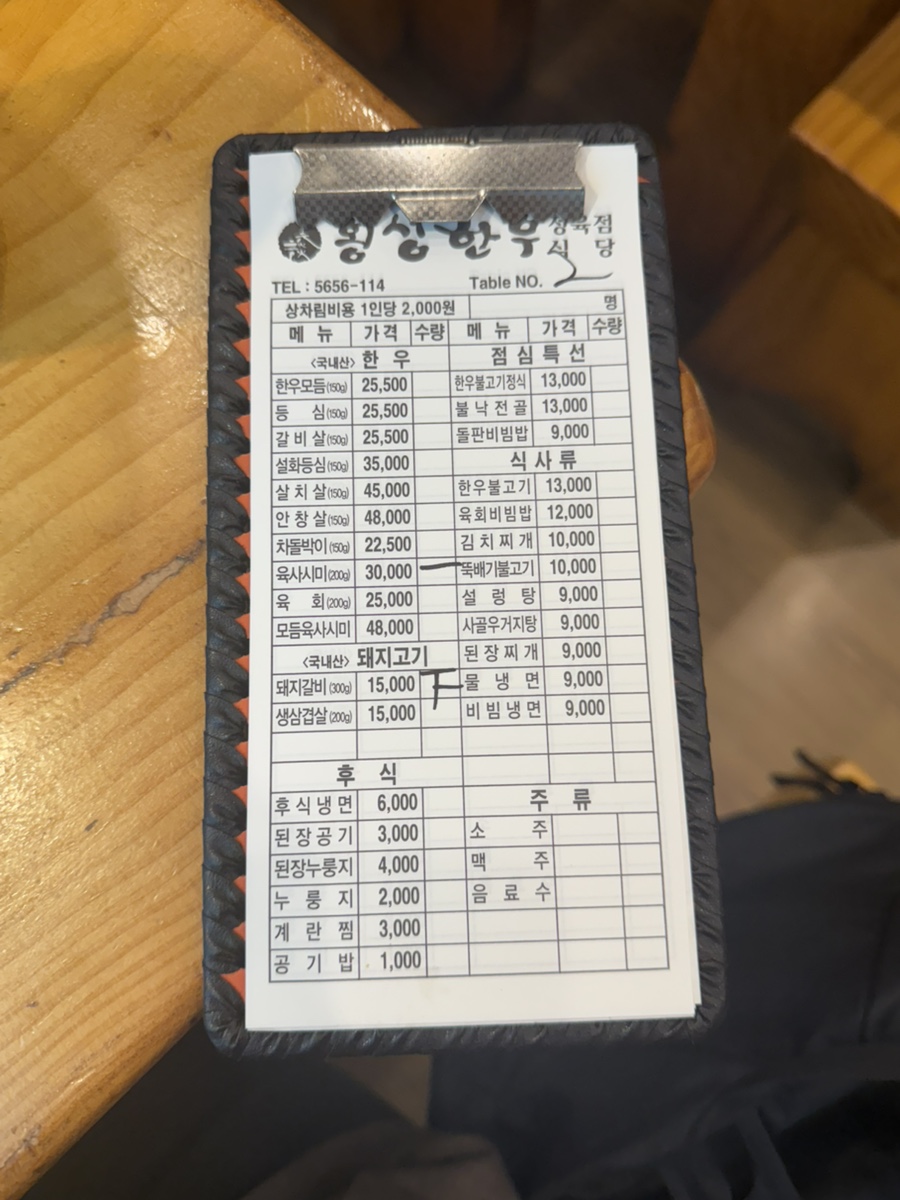 횡성한우 정육점
식당
TEL : 5656-114 Table NO. 2
상차림비용 1인당 2,000원 명
메뉴 가격 수량 메뉴 가격 수량
<국내산> 한우 점심특선
한우모듬(150g) 25,500 한우불고기정식 13,000
등심(150g) 25,500 불낙전골 13,000
갈비살(150g) 25,500 돌판비빔밥 9,000
설화등심(150g) 35,000 식사류
살치살(150g) 45,000 한우불고기 13,000
안창살(150g) 48,000 육회비빔밥 12,000
차돌박이(150g) 22,500 김치찌개 10,000
육사시미(200g) 30,000 一 뚝배기불고기 10,000
육회(200g) 25,000 설렁탕 9,000
모듬육사시미 48,000 사골우거지탕 9,000
<국내산> 돼지고기 된장찌개 9,000
돼지갈비(300g) 15,000 물냉면 9,000
생삼겹살(200g) 15,000 비빔냉면 9,000
후식
후식냉면 6,000 주류
된장공기 3,000 소주
된장누룽지 4,000 맥주
누룽지 2,000 음료수
계란찜 3,000
공기밥 1,000